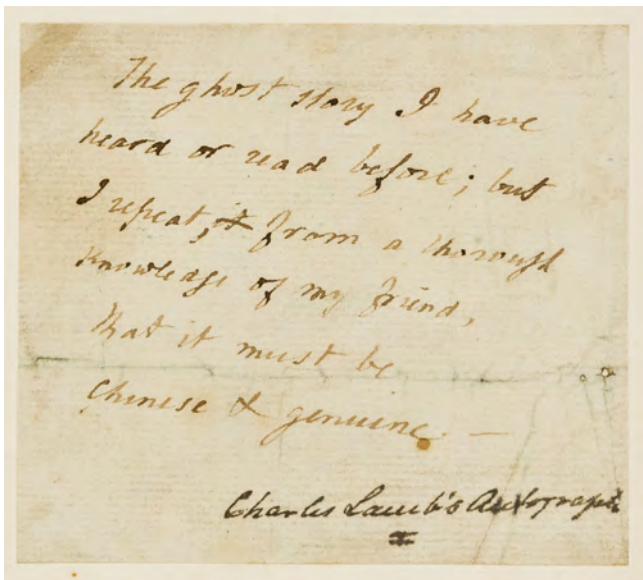 The ghost story I have
heard or read before; but
I repeat, it from a thorough
knowledge of my friend,
that it must be
Chinese & genuine. —
Charles Lamb's Autograph